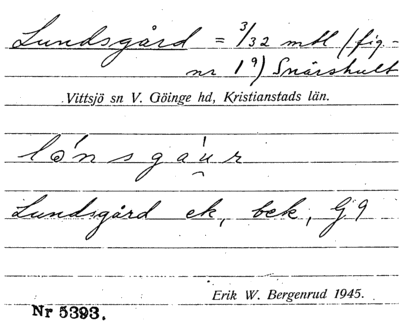 Lundsgård = 3/32 mtl (fig-
nr 19) Snärshult
Vittsjö sn V. Göinge hd, Kristianstads län.
lǿnsgau̯r
Lundsgård ek, bek, G9
Erik W. Bergenrud 1945.
Nr 5393.